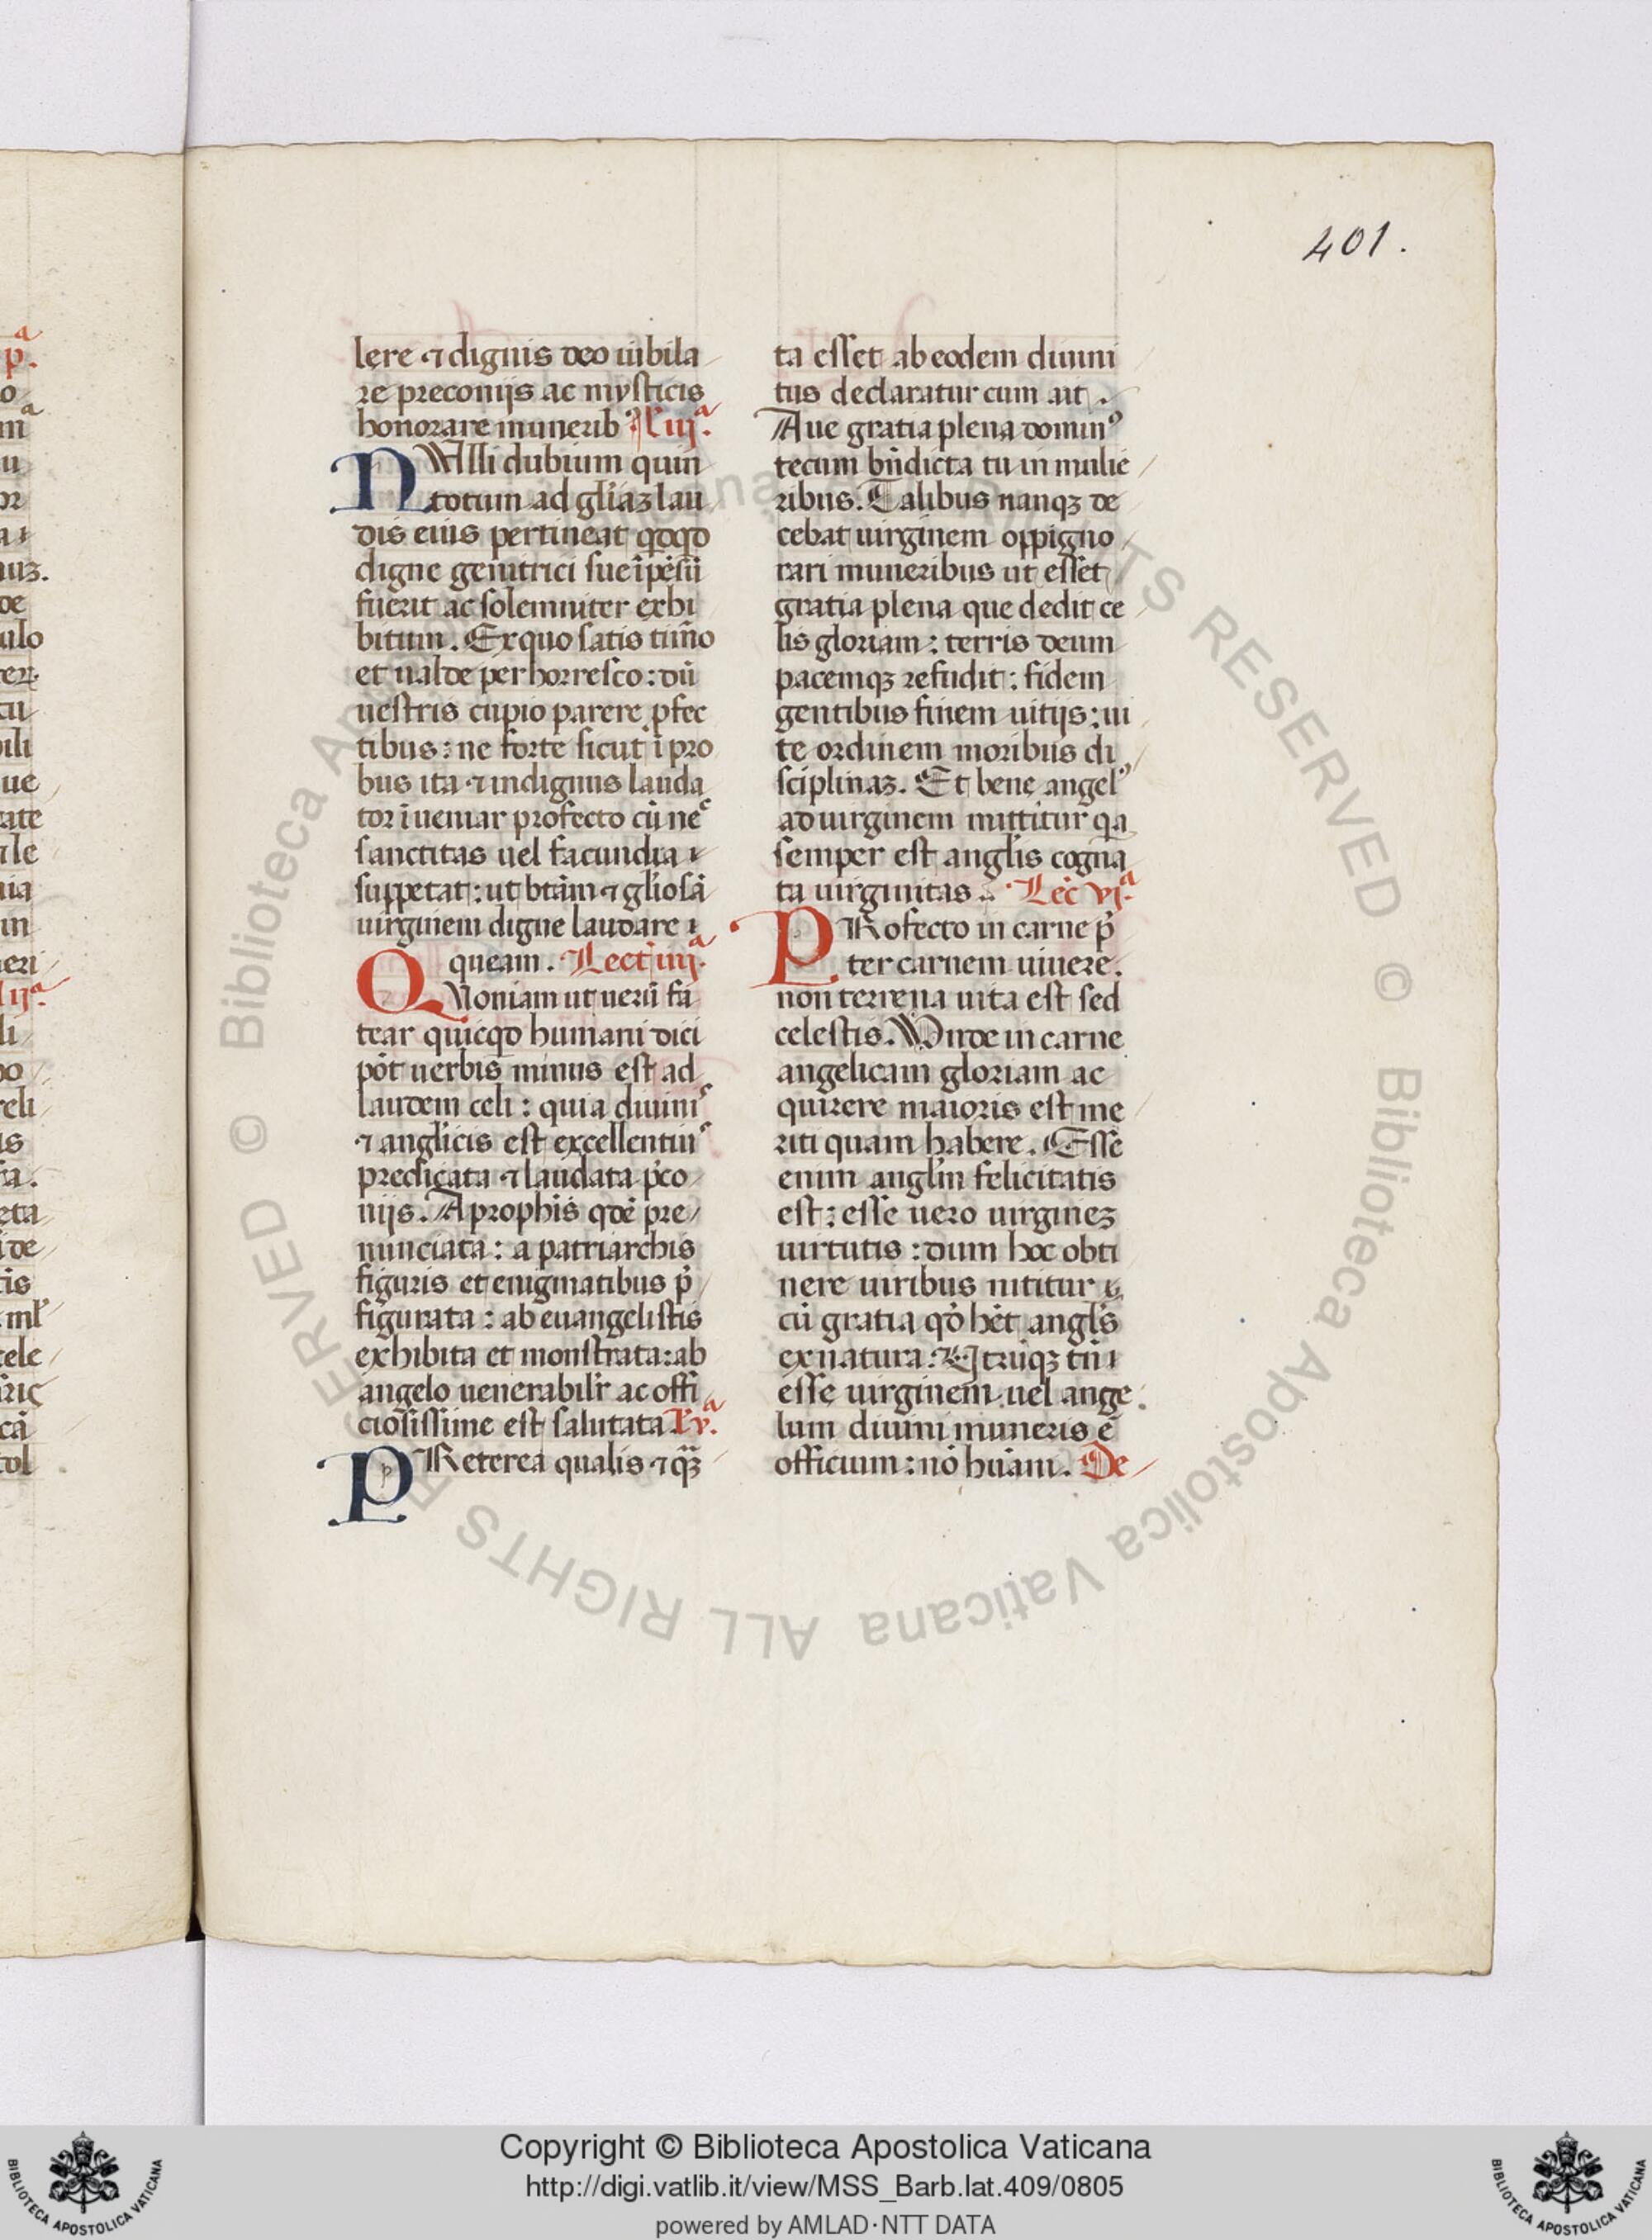 401.
lere ⁊ dignis deo iubila
re preconijs ac mysticis
honorare munerib⁹. L' iijª.
NUlli dubium quin
totum ad gl'iaꝫ lau
dis eius pertineat qdqd
digne genitrici sue īpēsū
fuerit ac solemniter exhi
bitum. Ex quo satis tim̄o
et ualde perhorresco: dū
uestris cupio parere p̄fec
tibus: ne forte sicut ī pro
bus ita ⁊ indignus lauda
tor īueniar profecto cū nec
sanctitas uel facundia
suppetat: ut btām ⁊ gl'iosā
uirginem digne laudare
queam. Lect' iiijª.
QUoniam ut uerū fa
tear quicqd humani dici
pōt uerbis minus est ad
laudem celi: quia diuinis
⁊ angl'icis est excellentius
predicata ⁊ laudata p̄co
nijs. A prophīs qdē pre
nunciata: a patriarchis
figuris et enigmatibus p̄
figurata: ab euangelistis
exhibita et monstrata: ab
angelo uenerabilr̄ ac offi
ciosissime est salutata. L' vª.
PReterea qualis ⁊ qᷓꝫ
ta esset ab eodem diuini
tus declaratur cum ait.
Aue gratia plena domin⁹
tecum bn̄dicta tu in mulie
ribus. Talibus nanqꝫ de
cebat uirginem oppigno
rari muneribus ut esset
gratia plena que dedit ce
lis gloriam: terris deum
pacemqꝫ refudit: fidem
gentibus finem uitijs: ui
te ordinem moribus di
sciplinaꝫ. Et bene angel⁹
ad uirginem mittitur qa
semper est angl'is cogna
ta uirginitas. Lec' vjª.
PRofecto in carne p̄
ter carnem uiuere.
non terrena uita est sed
celestis. Unde in carne
angelicam gloriam ac
quirere maioris est me
riti quam habere. Esse
enim angl'm felicitatis
est: esse uero uirgineꝫ
uirtutis: dum hoc obti
nere uiribus nititur
cū gratia qd' hēt angl's
ex natura. Utrūqꝫ tn̄
esse uirginem uel ange
lum diuini muneris ē
officium: nō huāni. De
Copyright © Biblioteca Apostolica Vaticana
http://digi.vatlib.it/view/MSS_Barb.lat.409/0805
powered by AMLAD·NTT DATA